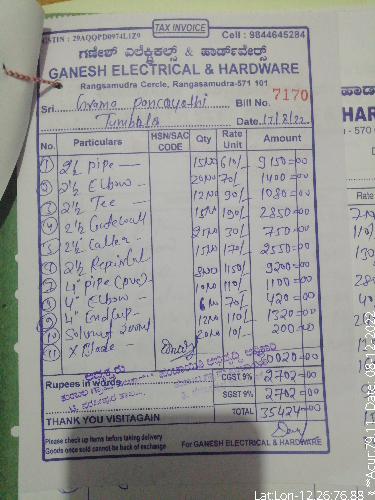 TAX INVOICE
GSTIN : 29AQQPD0974L1Z9 Cell : 9844645284
ಗಣೇಶ್ ಎಲೆಕ್ಟ್ರಿಕಲ್ಸ್ & ಹಾರ್ಡ್‌ವೇರ್ಸ್
GANESH ELECTRICAL & HARDWARE
Rangasamudra Cercle, Rangasamudra-571 101
Sri Grama Pancayathi Bill No. 7170
Tumbala Date. 17/8/22
No. Particulars HSN/SAC CODE Qty Rate Unit Amount
1 2½ pipe — 15No 610/- 9150=00
2 2½ Elbow — 20No 70/- 1400=00
3 2½ Tee — 12No 90/- 1080=00
4 2½ 15No 190/- 2850=00
5 2½ 30/- 750=00
6 2½ 15No 170/- 2550=00
7 4" pipe 8No 1150/- 9200=00
8 4" Elbow — 10No 110/- 1100=00
9 4" End cup — 6No 70/- 420=00
10 Solvent 12No 110/- 1320=00
11 X Blade — 20No 10/- 200=00
30020=00
Rupees in words CGST 9% 2702=00
SGST 9% 2702=00
THANK YOU VISITAGAIN TOTAL 35424=00
Please check up items before taking delivery
Goods once sold cannot be back of exchange For GANESH ELECTRICAL & HARDWARE
HAR
- 570
Rate
Lat:Lon-12.26:76.88